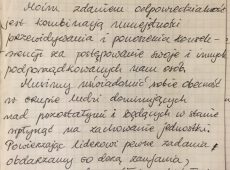 Moim zdaniem odpowiedzialność
jest kombinacją umiejętności
przewidywania i ponoszenia konsek-
wencji za postępowanie swoje i innych
podporządkowanych nam osób.
Musimy uświadomić sobie obecność
w skupie ludzi dominujących
nad pozostałymi i będących w stanie
wpłynąć na zachowanie jednostki.
Powierzając liderowi pewne zadania,
obdarzamy go dozą zaufania,